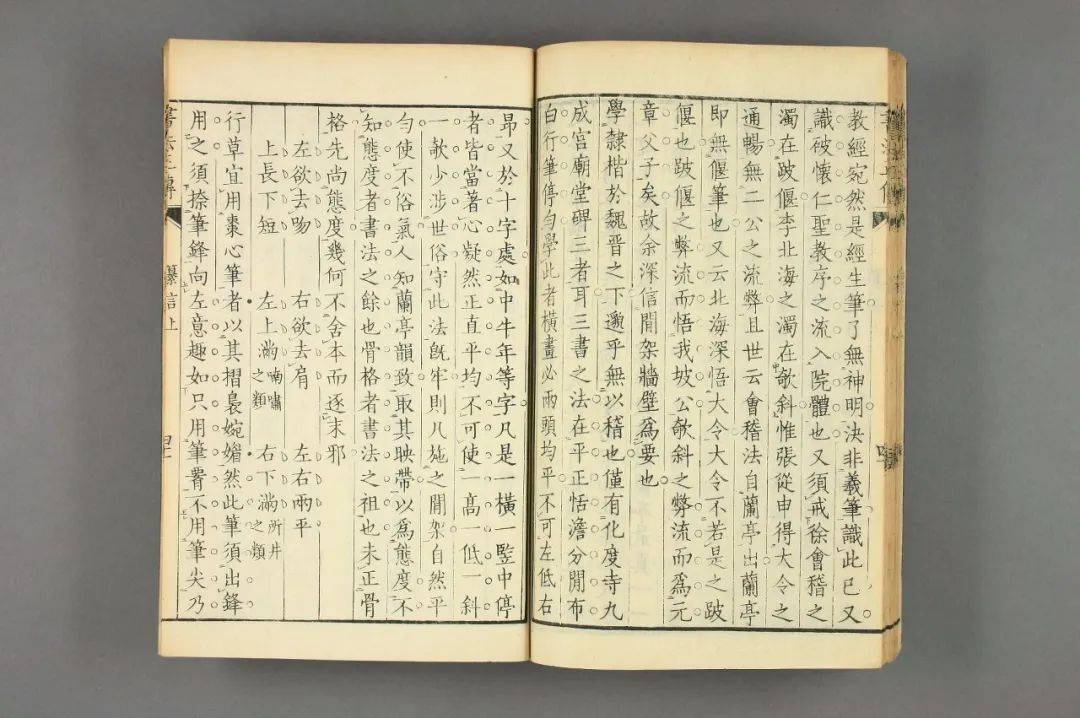 教經宛然是經生筆了無神明決非羲筆識此已又
識破懷仁聖教序之流入院體也又須戒徐會稽之
濁在跛偃李北海之濁在欹斜惟張從申得大令之
通暢無二公之流弊且世云會稽法自蘭亭出蘭亭
即無偃筆也又云北海深悟大令大令不若是之跛
偃也跛偃之弊流而悟我坡公欹斜之弊流而爲元
章父子矣故余深信閒架牆壁爲要也
學隸楷於魏晉之下邈乎無以稽也僅有化度寺九
成宮廟堂碑三者耳三書之法在平正恬澹分閒布
白行筆停勻學此者橫畫必兩頭均平不可左低右
昂又於十字處如中牛年等字凡是一橫一竪中停
者皆當著心凝然正直平均不可使一高一低一斜
一欹少涉世俗守此法旣牢則凡施之閒架自然平
勻使不俗氣人知蘭亭韻致取其映帶以爲態度不
知態度者書法之餘也骨格者書法之祖也未正骨
格先尚態度幾何不舍本而逐末邪
左欲去吻 右欲去肩 左右兩平
上長下短 左上滿喃嘯之類 右下滿所井之類
行草宜用棗心筆者以其摺裊婉媚然此筆須出鋒
用之須捺筆鋒向左意趣如只用筆不用筆尖乃
書法正傳 纂言上